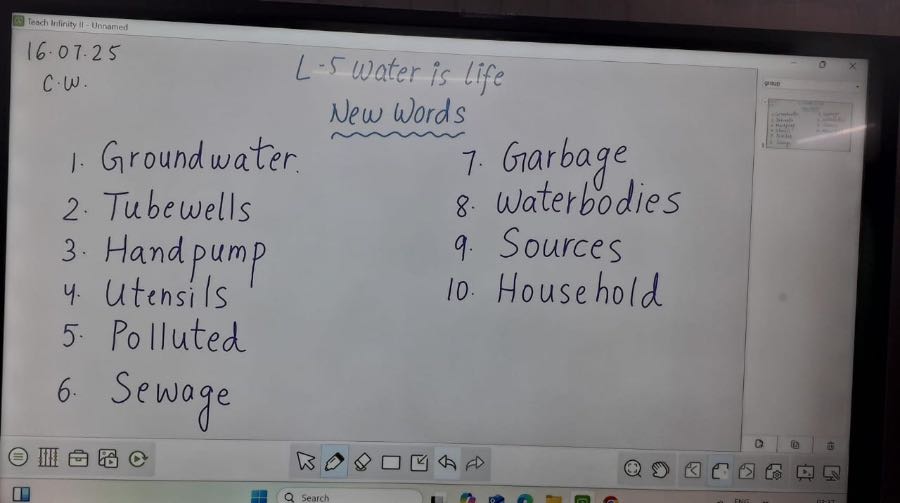 Teach Infinity II - Unnamed
16.07.25
C.W.
L-5 Water is life
New Words
1. Groundwater.
2. Tubewells
3. Handpump
4. Utensils
5. Polluted
6. Sewage
7. Garbage
8. Waterbodies
9. Sources
10. Household
group
Search
ENG